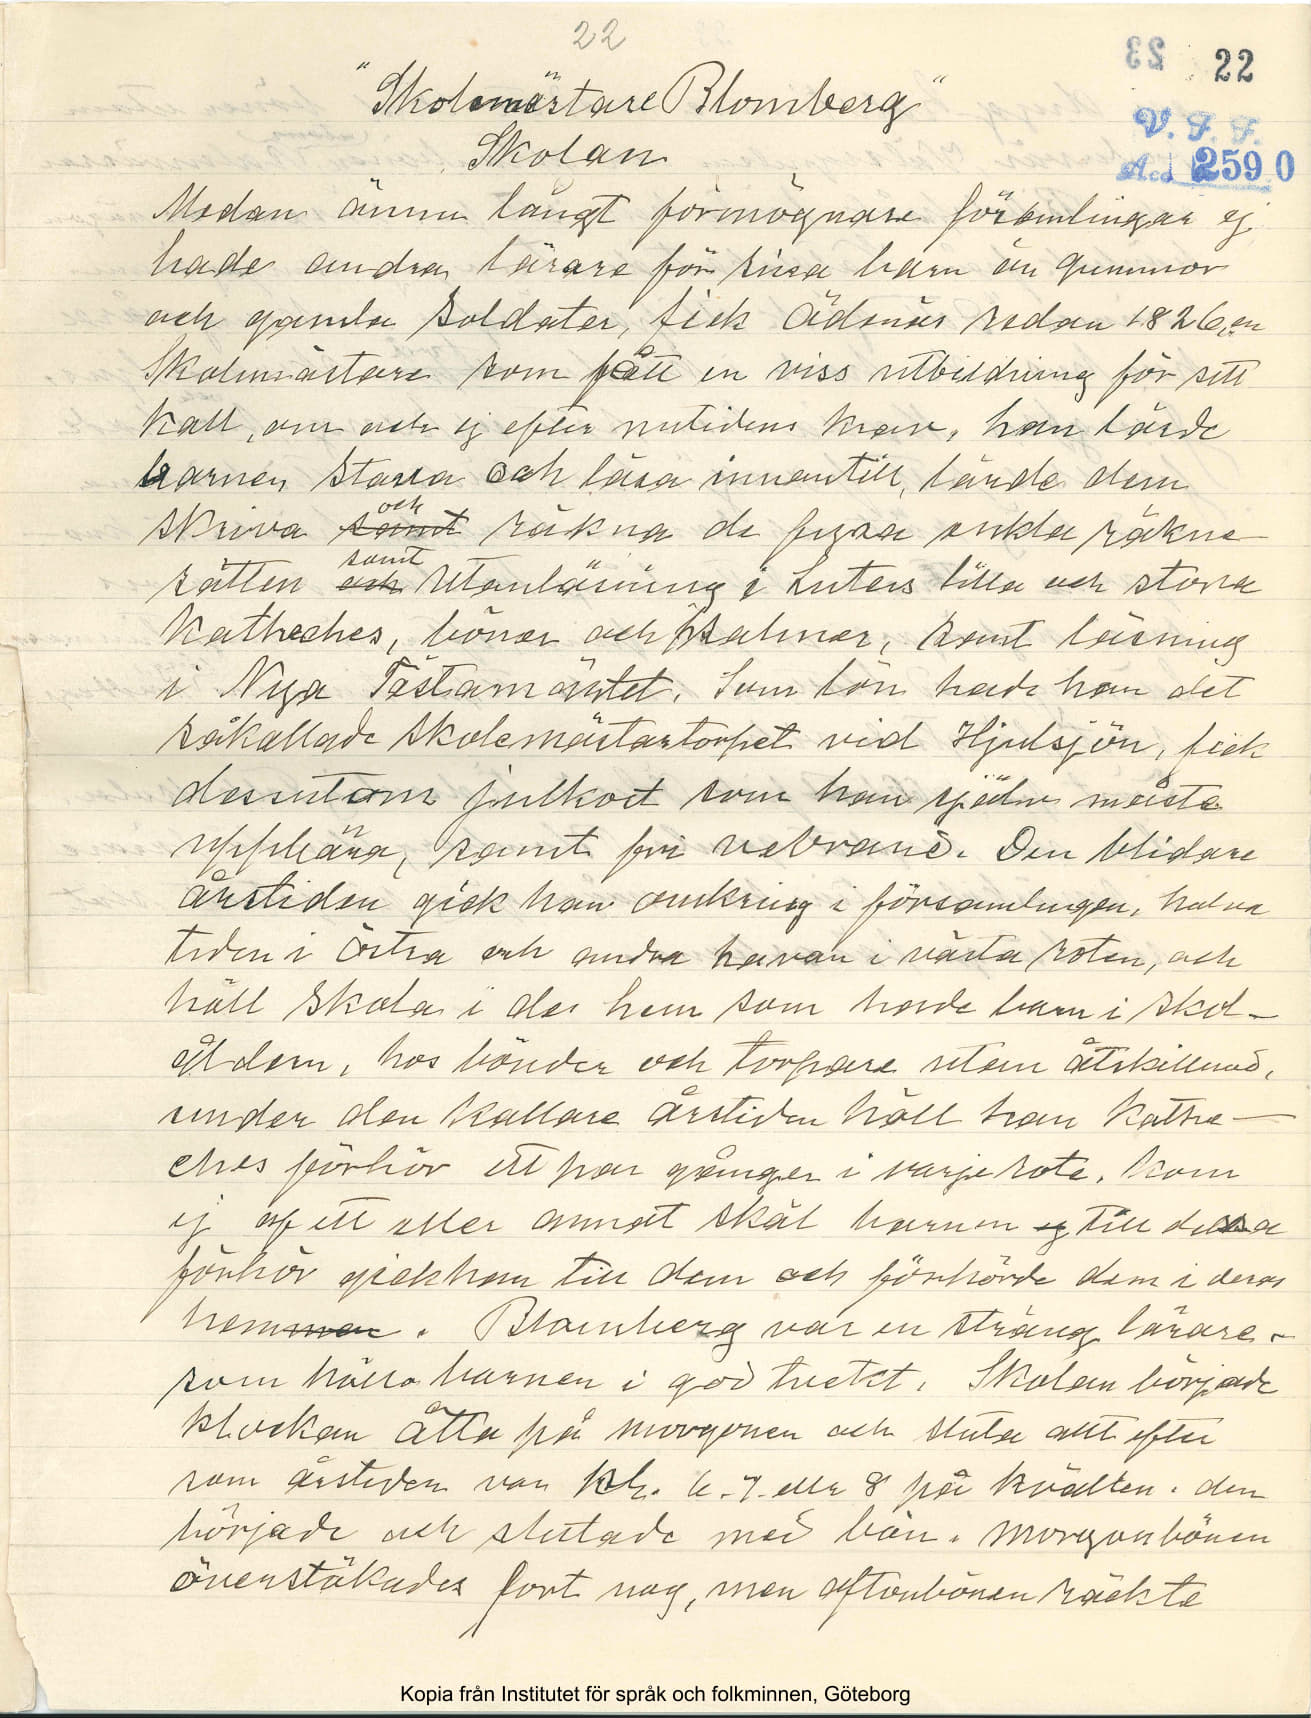 22
23 22
"Skolemästare Blomberg"
V. F. F.
Skolan
Acc 2590
Medan ännu långt förmögnare församlingar ej
hade andra lärare för sina barn än gummor
och gamla soldater, fick Ödenäs redan 1826, en
Skolmästare som fått en viss utbildning för sitt
kall, om och ej efter nutidens krav, han lärde
barnen stava och läsa innantill, lärde dem
skriva samt och räkna de fyra enkla räkne-
sätten och samt utanläsning i Luters lilla och stora
Katheches, böner och psalmer, samt läsning
i Nya Tästamäntet. Som lön hade han det
såkallade skolemästartorpet vid Hjulsjön, fick
dessutom julkost som han själv måste
uppbära, samt fri vebrand. Den blidare
årstiden gick han omkring i församlingen, halva
tiden i östra och andra havan i västa roten, och
höll skola i de hem som hade barn i skol-
åldern, hos bönder och torpare utan åtskillnad,
under den kallare årstiden höll han Kathe-
ches förhör ett par gånger i varje rote, kom
ej af ett eller annat skäl barnen ej till dessa
förhör gick han till dem och förhörde dem i deras
hemmen. Blomberg var en sträng lärare
som höllo barnen i god tuckt. Skolan började
klockan åtta på morgonen och sluta allt efter
som årstiden var kl. 6. 7. eller 8 på kvällen. den
började och slutade med bön. morgonbönen
överstökades fort nog, men aftonbönen räckte
Kopia från Institutet för språk och folkminnen, Göteborg